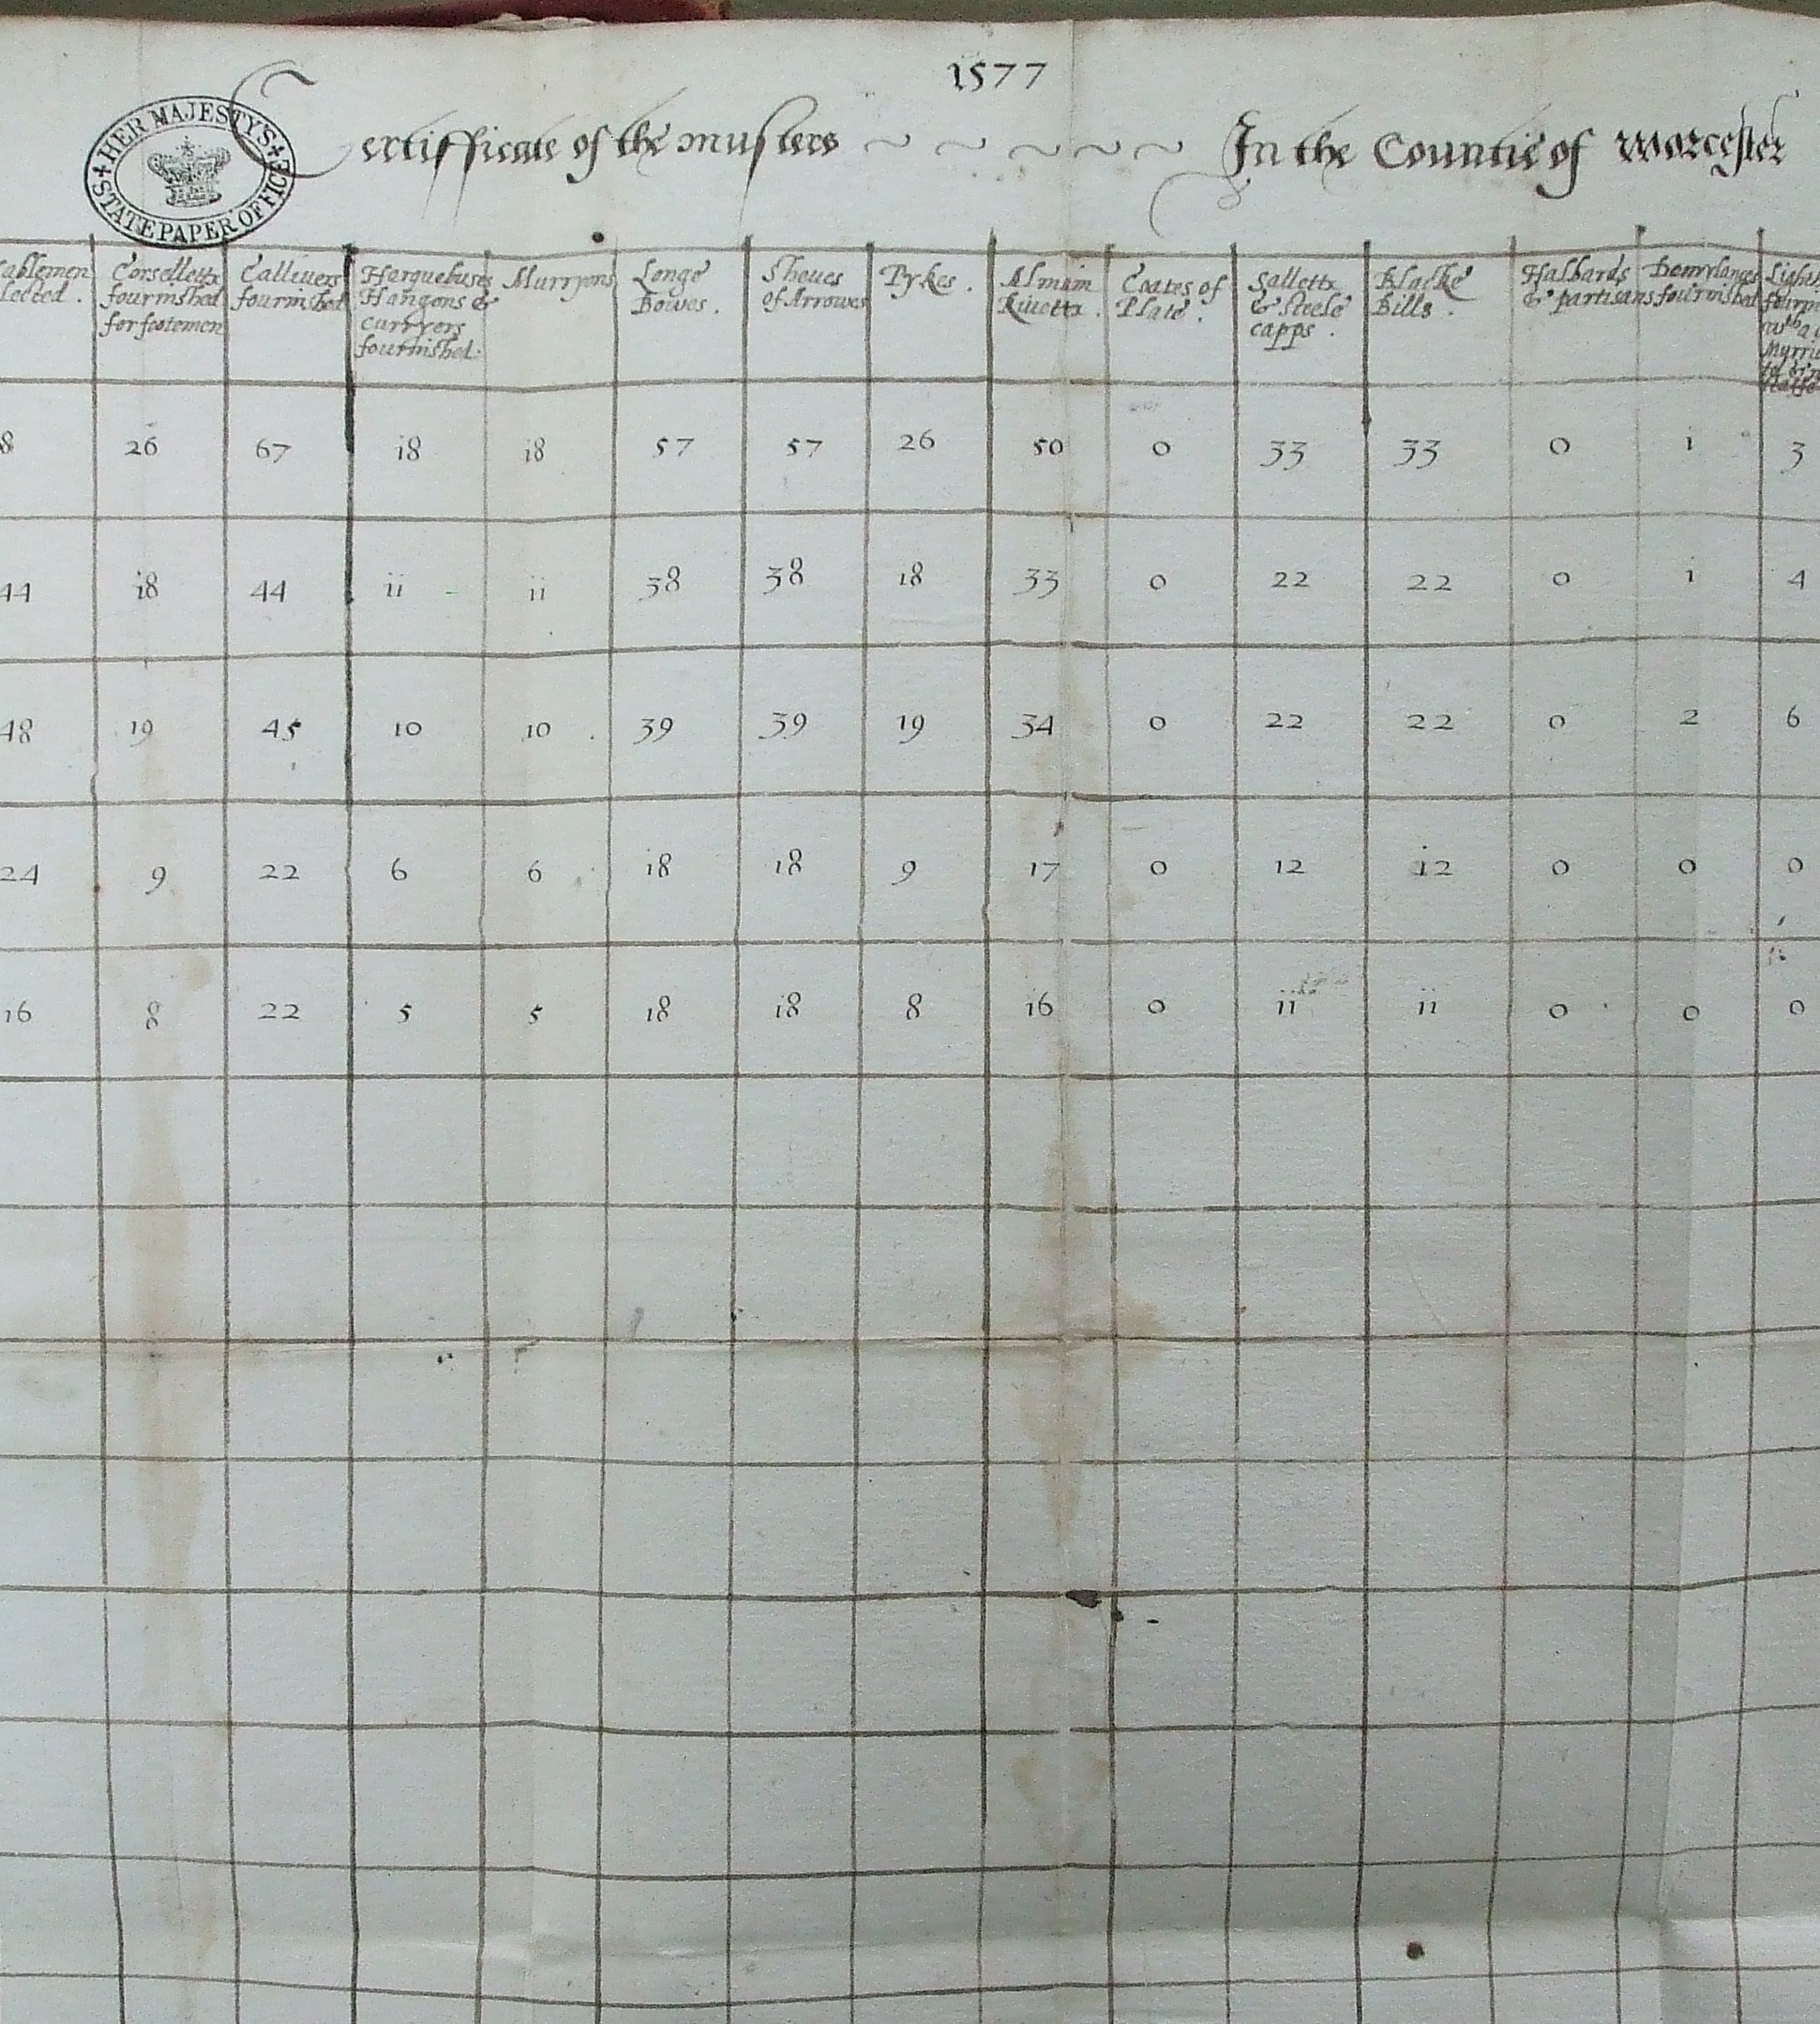 1577
HER MAJESTYS STATE PAPER OFFICE
Certifficate of the musters In the Countie of Worcester
Corselletts fournished for footemen
Callivers fournished
Harquebuses Hangons & curryers fournished
Murryons
Longe Bowes.
Sheues of Arrowes
Pykes.
Almain Riuetts.
Coates of Plate.
Salletts & steele capps.
Blacke Bills.
Halbards & partisans
Demylances fournished
8 26 67 i8 i8 57 57 26 50 0 33 33 0 i 3
44 i8 44 ii ii 38 38 18 33 0 22 22 0 1 4
48 19 45 10 10 39 39 19 34 0 22 22 0 2 6
24 9 22 6 6 i8 18 9 17 0 12 12 0 0 0
16 8 22 5 5 18 i8 8 i6 0 ii ii 0 0 0